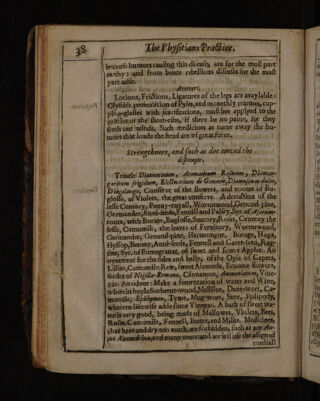 38
The Physitians Practice.
because humors causing this disease, are for the most part
earthy: and from hence rebellious diseases for the most
part arise.
Lotions, Frictions, Ligatures of the legs are avaylable:
Clysters provocation of Pyles, and monethly tearmes, cup-
ping-glasses with scarifications, must bee applyed to the
of the short-ribs, if there be no paine, for they
fetch out winds. Such medicines as turne away the hu-
mors that loade the head are of great force.
Strengtheners, and such as doe amend the
distemper.
Triacle Diatrion, Aromaticum Rosatum, Diamar-
garitum frigidum, Electuarium de Gemmis, Diamuscum dulce,
Diagalanga, Conserve of the flowers, and rootes of Bu-
glosse, of Violets, the great conserve. A decoction of the
lesse Century, Penny-royall, Wormewood, Ground-pine,
Germander, Anni-seeds, Fennill and Pasley, Syr. of
roots, with Borage, Buglosse, Succory, Roses, Century the
lesse, Camomile, the leaves of Fumitory, Wormewood,
Germander, Ground-pine, Hartstongue, Borage, Hops,
Hyssop, Betony, Anni-seeds, Fennell and Caret-seed, Rag-
Syr. of Pomegranat, of sweet and sowre Apples. An
oyntment for the sides and belly, of the Oyle of Capers,
Lillies, Camomile, Rew, sweet Almonds, Broome flowers,
seedes of Nigella-Romana, Cinnamon, Ammoniacum, Vine-
gar. An odour: Make a fomentation of water and Wine,
wherein boyle Sothernewood, Mellilot, Dane-wort, Ca-
momile; Epithymus, Tyme, Mug-wort, Sene, Polipody,
whereto likewise adde some Vinegar. A bath of sweet wa-
ter is very good, being made of Mallowes, Violets, Bees,
Roses, Camomile, Fennell, Butter, and Milke. Medicines
that heat and dry too much, are forbidden, such as are
Alexandrina, and many more: and we will use the assigned
cordiall